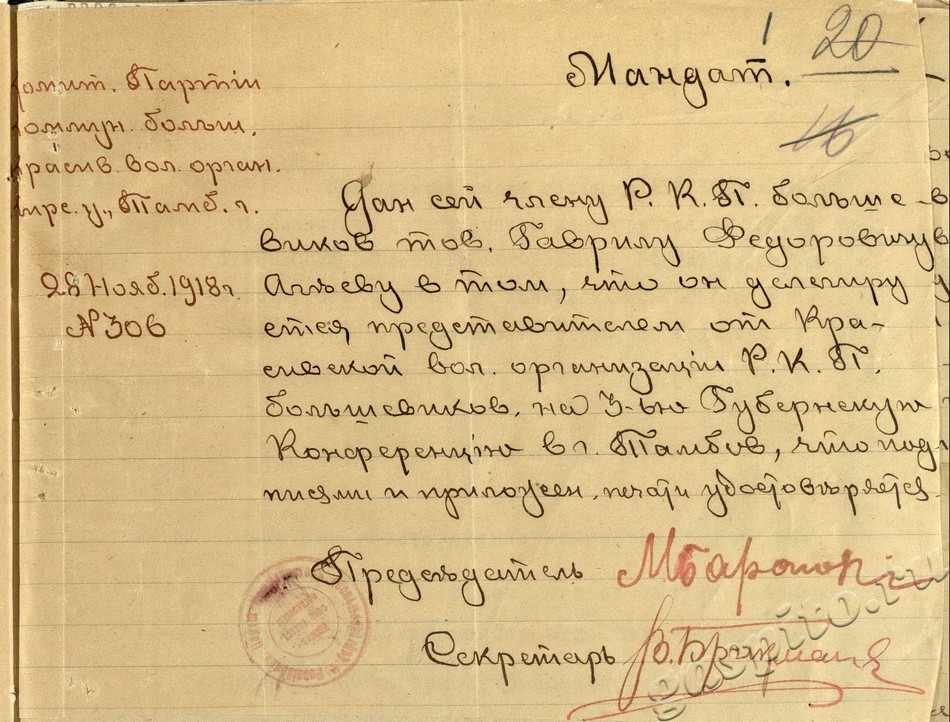 20
Мандат.
16
омит. Партіи
оммун. больш.
расив. вол. орган.
у., Тамб. г.
28 Нояб. 1918 г.
№ 306
Дан сей члену Р. К. П. больше-
виков тов. Гаврилу Федоровичу
Агѣеву в том, что он делегиру
ется представителем от Кра-
сивской вол. организаціи Р. К. П.
большевиков, на 3-ью Губернскую
Конференцію в г. Тамбов, что под
писями и приложен. печати удостовѣряется
Предсѣдатель
Секретарь
gaspito.ru